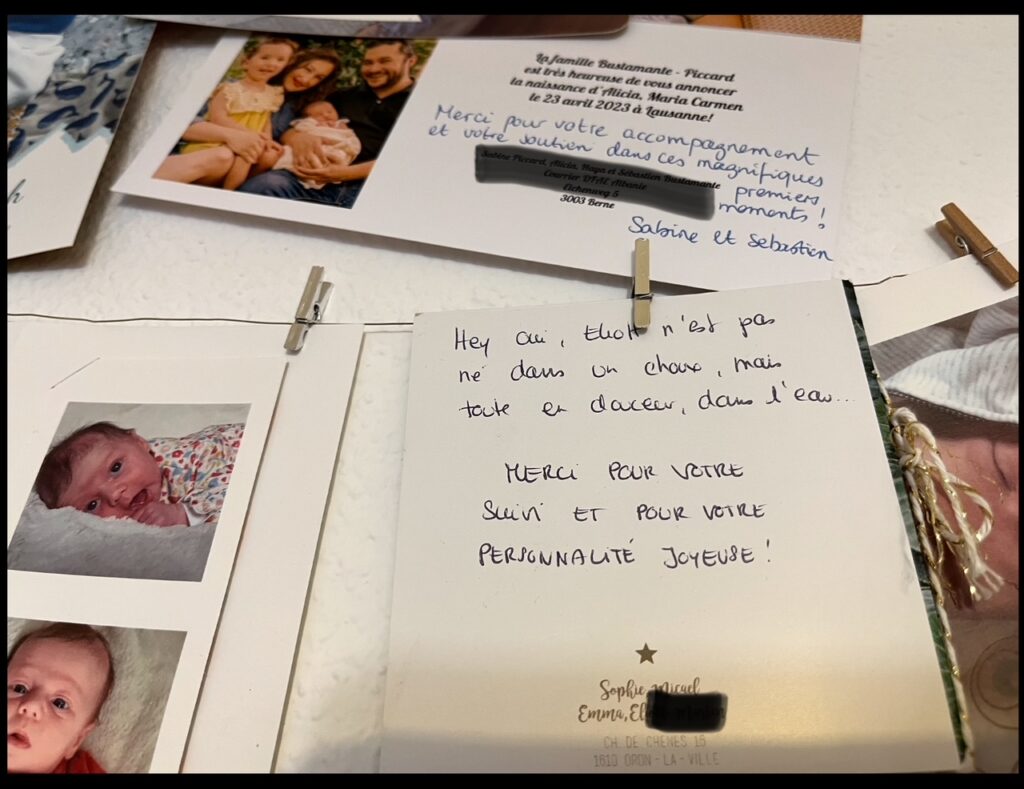 La famille Bustamante - Piccard
est très heureuse de vous annoncer
la naissance d'Alicia, Maria Carmen
le 23 avril 2023 à Lausanne!
Merci pour votre accompagnement
et votre soutien dans ces magnifiques
premiers
moments !
3003 Berne
Sabine et Sebastien
Hey oui, Eliott n'est pas
né dans un choux, mais
toute en douceur, dans l'eau...
MERCI POUR VOTRE
SUIVI ET POUR VOTRE
PERSONNALITÉ JOYEUSE !
Sophie Micael
Emma,
CH. DE CHENES 16
1610 ORON-LA-VILLE